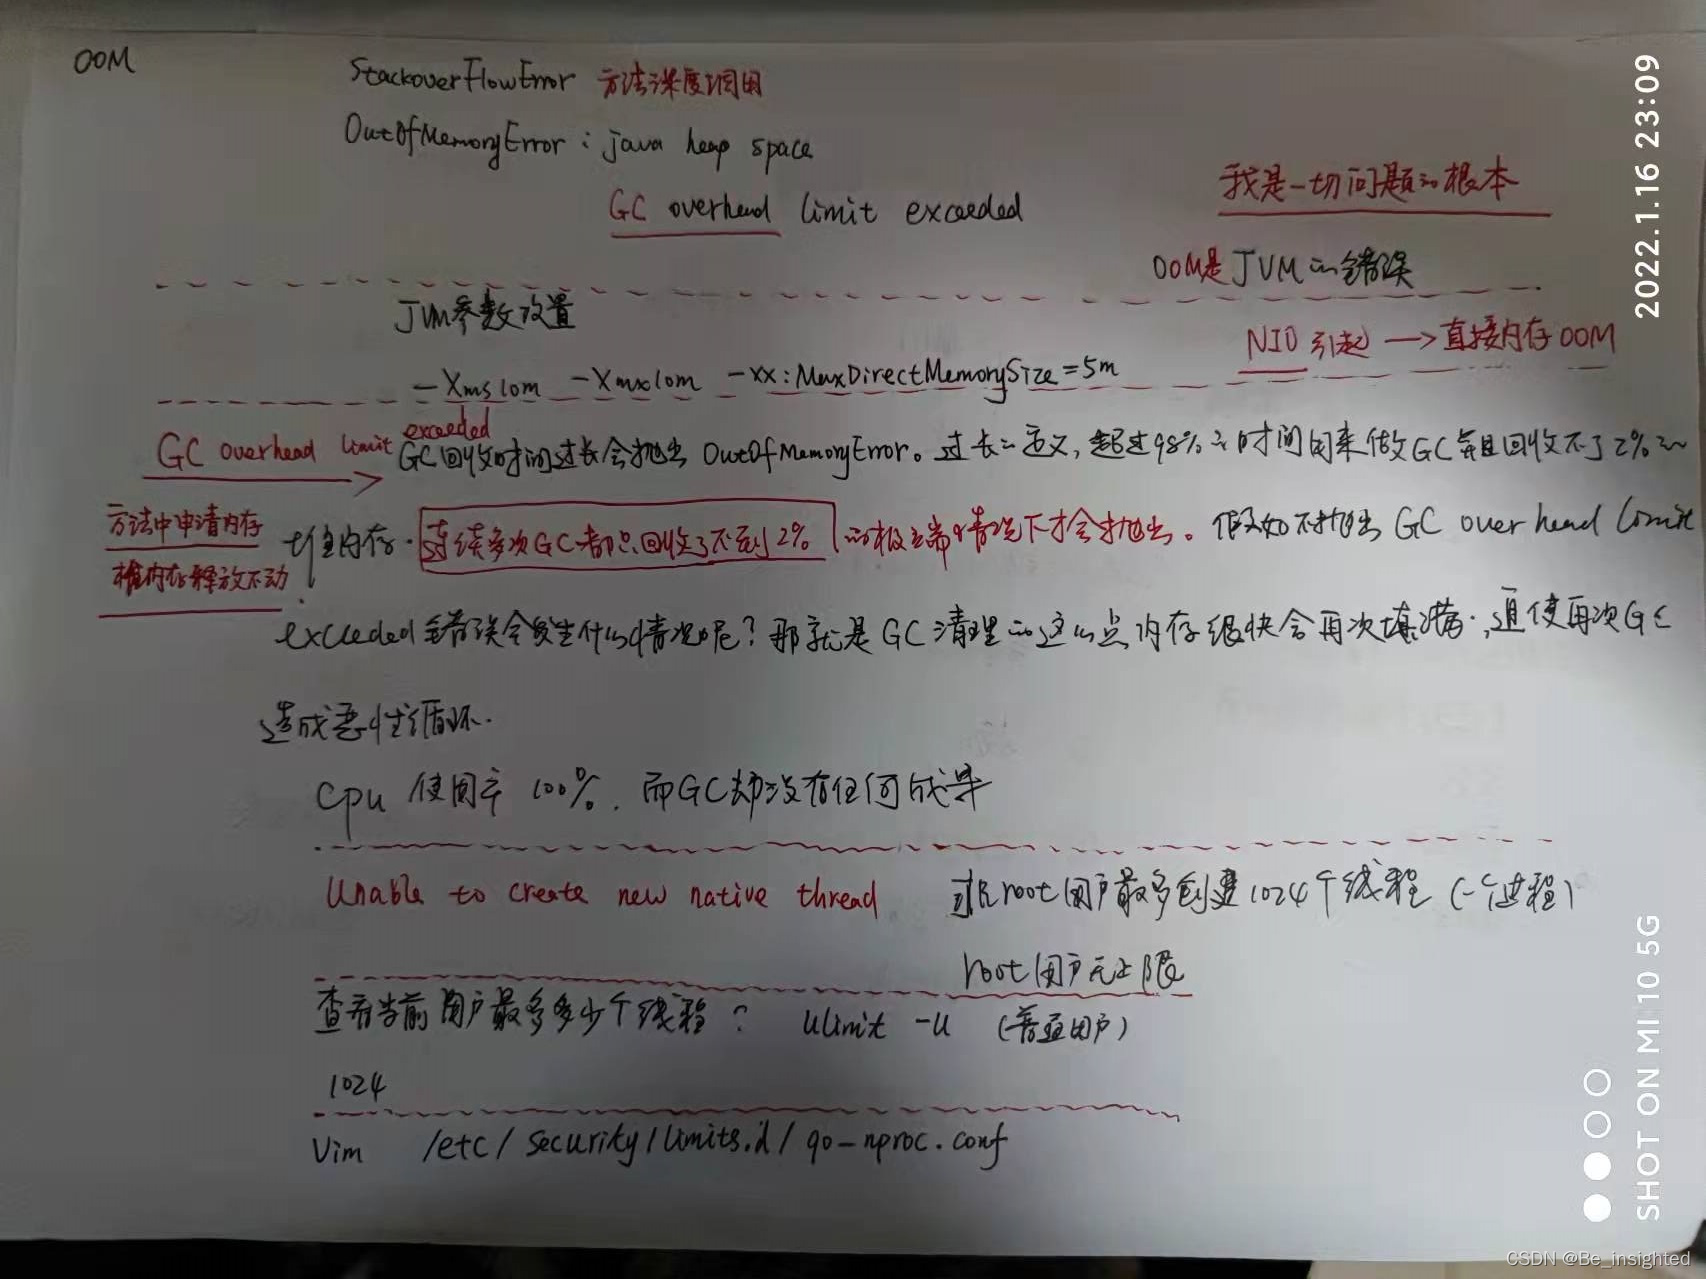 OOM
StackoverFlowError 方法深度调用
OutOfMemoryError：java heap space
GC overhead limit exceeded
我是一切问题的根本
OOM是JVM的错误
JVM参数设置
NIO引起 —> 直接内存OOM
-Xms10m -Xmx10m -XX:MaxDirectMemorySize=5m
GC overhead limit exceeded
GC回收时间过长会抛出OutOfMemoryError。过长的定义,超过98%的时间用来做GC并且回收不了2%的
方法中申请内存
堆内存释放不动
堆内存.连续多次GC都只回收了不到2%的极端情况下才会抛出。假如不抛出GC overhead limit
exceeded错误会发生什么情况呢?那就是GC清理的这么点内存很快会再次填满.,迫使再次GC
造成恶性循环.
cpu使用率100%,而GC却没有任何成果
Unable to create new native thread
非root用户最多创建1024个线程(一个进程)
root用户无上限
查看当前用户最多多少个线程? ulimit -u (普通用户)
1024
Vim /etc/security/limits.d/90-nproc.conf
2022.1.16 23:09
SHOT ON MI 10 5G
CSDN @Be_insighted